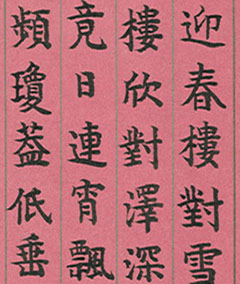 迎春樓對雪
樓欣對澤深
竟日連宵飄
頻瓊葢低垂